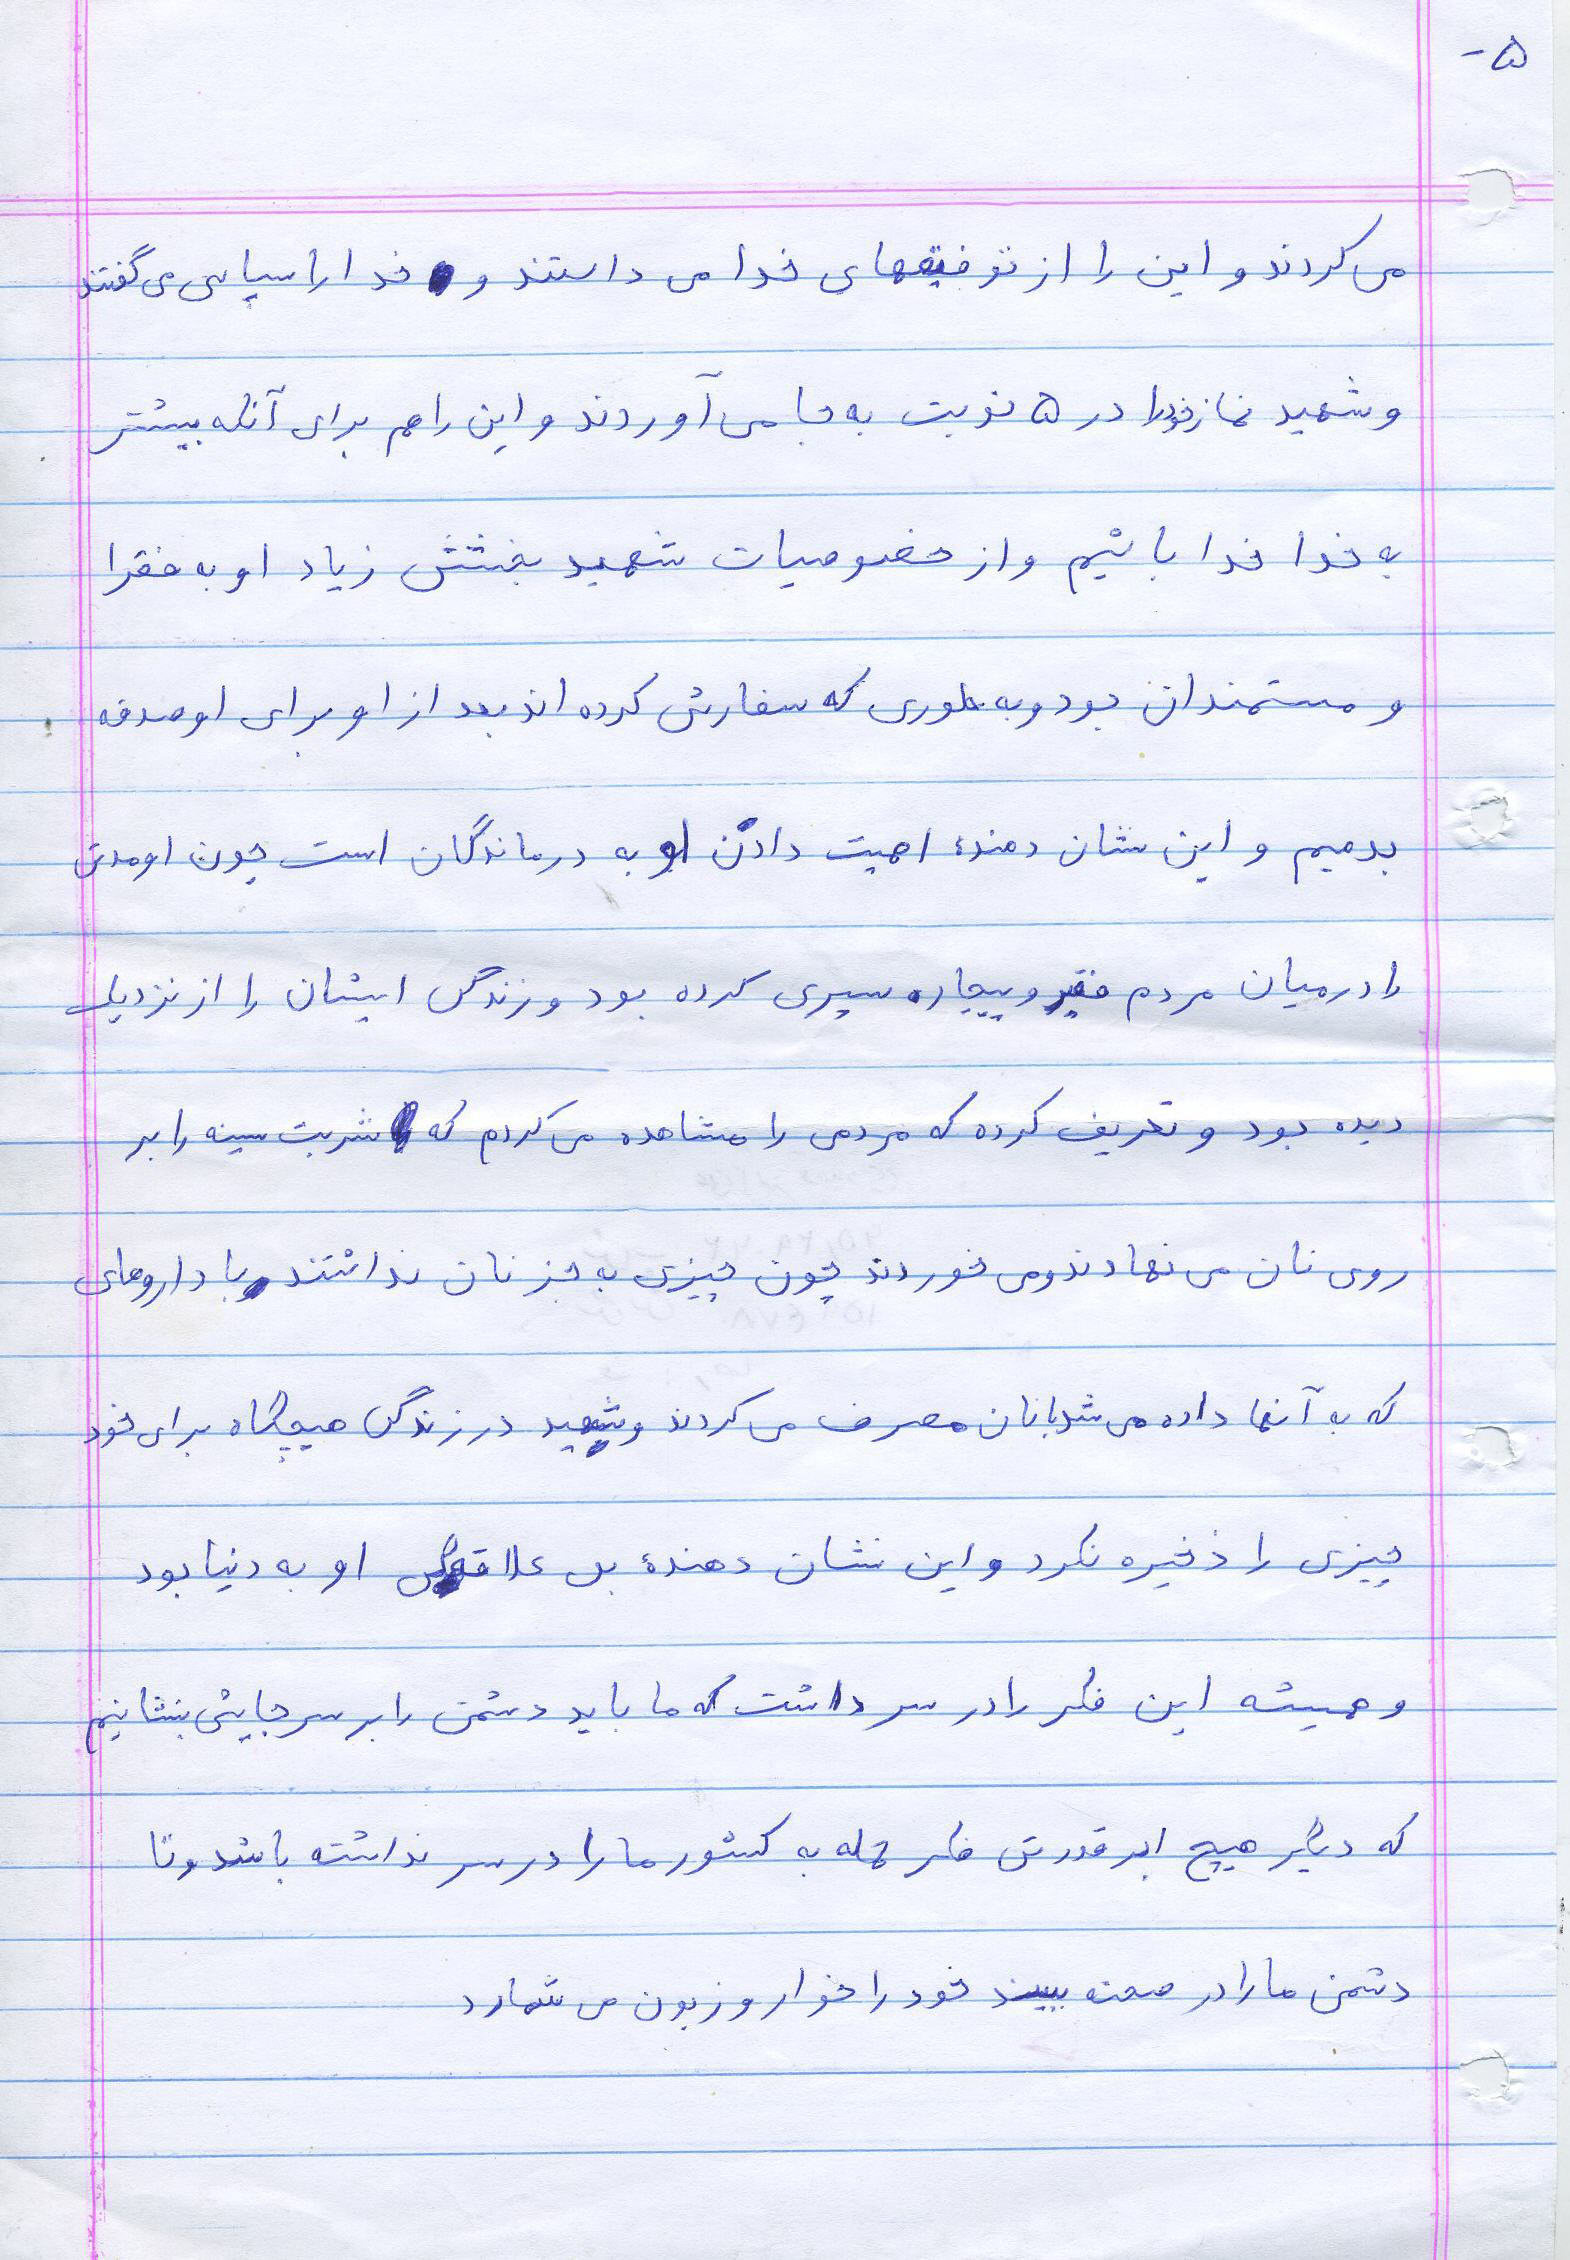 ۵-
می کردند و این را از توفیقهای خدا می داستند و خدا را سپاس می گفتند
و شهید نماز خود را در ۵ نوبت به جا می آوردند و این را هم برای آنکه بیشتر
به خدا خدا باشیم و از خصوصیات شهید بخشش زیاد او به فقرا
و مستمندان بود و به طوری که سفارش کرده اند بعد از او برای او صدقه
بدهیم و این نشان دهندهٔ اهمیت دادن او به درماندگان است چون او مدتی
را در میان مردم فقیر و بیچاره سپری کرده بود و زندگی ایشان را از نزدیک
دیده بود و تعریف کرده که مردمی را مشاهده می کردم که شربت سینه را بر
روی نان می نهادند و می خوردند چون چیزی به جز نان نداشتند و با داروهای
که به آنها داده می شد با نان مصرف می کردند و شهید در زندگی هیچگاه برای خود
چیزی را ذخیره نکرد و این نشان دهندهٔ بی علاقگی او به دنیا بود
و همیشه این فکر را در سر داشت که ما باید دشمن را بر سر جایش بنشانیم
که دیگر هیچ ابر قدرتی فکر حمله به کشور ما را در سر نداشته باشد و تا
دشمن ما را در صحنه ببیند خود را خوار و زبون می شمارد